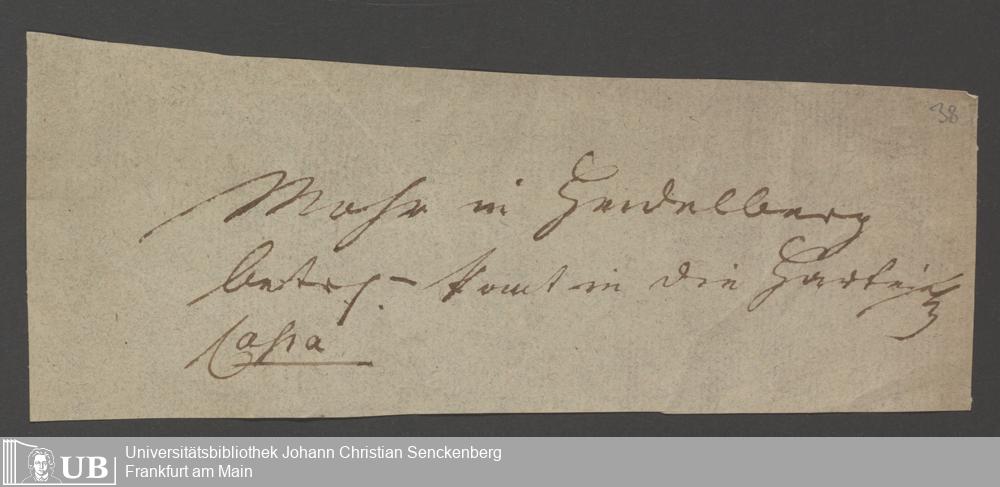 38
Mohr in Heidelberg
betref– komt in die
Cassa
UB
Universitätsbibliothek Johann Christian Senckenberg
Frankfurt am Main